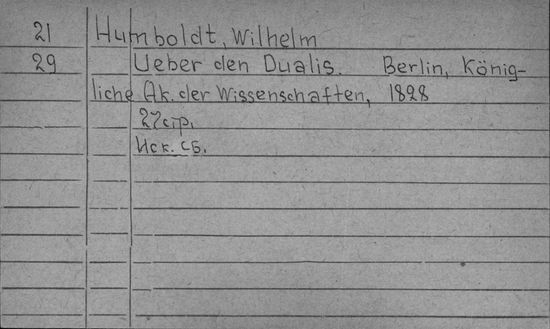 21 Humboldt, Wilhelm
29 Ueber den Dualis. Berlin, König-
liche Ak. der Wissenschaften, 1828
27 стр.
Иск. сб.